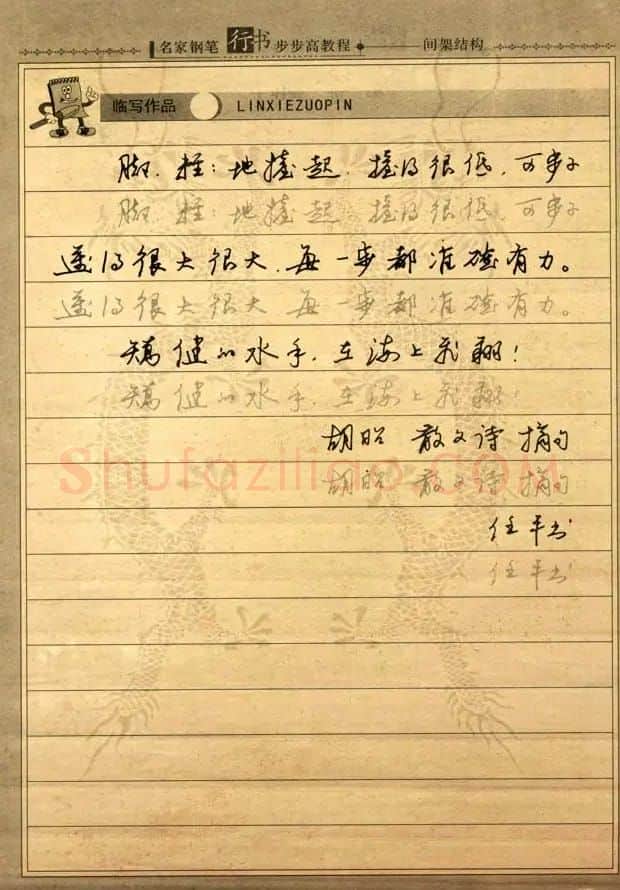 名家钢笔行书步步高教程 间架结构
临写作品 LINXIEZUOPIN
脚, 地 起, 得很低,可步子
脚, 地 起, 得很低,可步子
迈得很大很大,每一步都准确有力。
迈得很大很大,每一步都准确有力。
矫健的水手,在海上飞翻!
矫健的水手,在海上飞翻!
胡昭 散文诗 摘句
胡昭 散文诗 摘句
任平书
任平书
Shufaziliao.COM